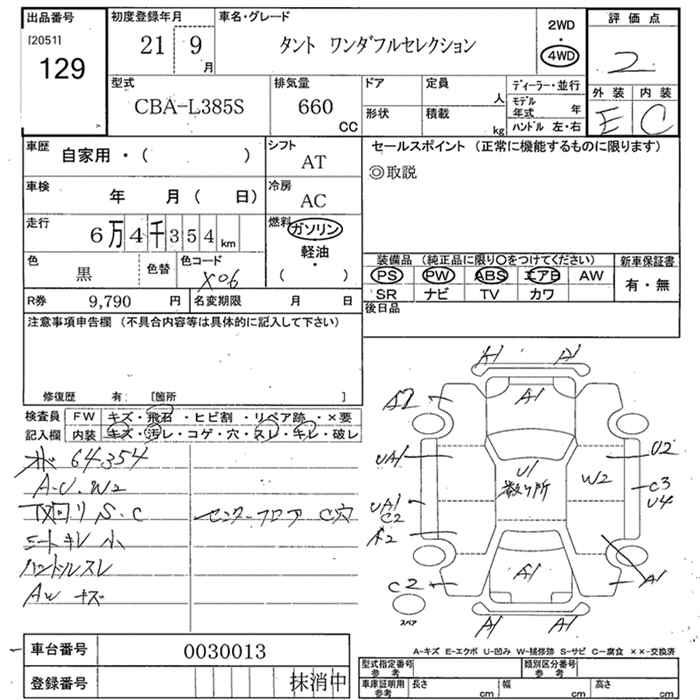 出品番号
[2051]
129
初度登録年月
21 9
月
車名・グレード
タント ワンダフルセレクション
2WD
・
4WD
評価点
2
外装 内装
E C
型式
CBA-L385S
排気量
660
CC
ドア
形状
定員
人
積載
kg
ディーラー・並行
モデル
年式 年
ハンドル 左・右
車歴
自家用・( )
シフト
AT
セールスポイント (正常に機能するものに限ります)
◎取説
車検
年 月( 日)
冷房
AC
走行
6万4千354km
燃料
ガソリン
軽油・
( )
色
黒
色替
色コード
X06
装備品 (純正品に限り○をつけてください)
PS PW ABS エアB AW
SR ナビ TV カワ
新車保証書
有・無
R券 9,790 円
名変期限 月 日
後日品
注意事項申告欄 (不具合内容等は具体的に記入して下さい)
修復歴 有: [箇所 ]
検査員
記入欄
FW キズ・飛石・ヒビ割・リペア跡・×要
内装 キズ・汚レ・コゲ・穴・スレ・キレ・破レ
64354
A・U・W2
下回リ S・C
センターフロア C穴
シートキレ小
ハンドルスレ
AW キズ
A1 A1
A2 A1
UA1 U2
U1 W2
散り所
C3
U4
UA1
C2
A2
A1
C2 A1
A1 A1
スペア
A-キズ E-エクボ U-凹み W-補修跡 S-サビ C-腐食 ××-交換済
車台番号 0030013
登録番号 抹消中
型式指定番号
参考
類別区分番号
参考
車庫証明用
参考
長さ cm
幅 cm
高さ cm